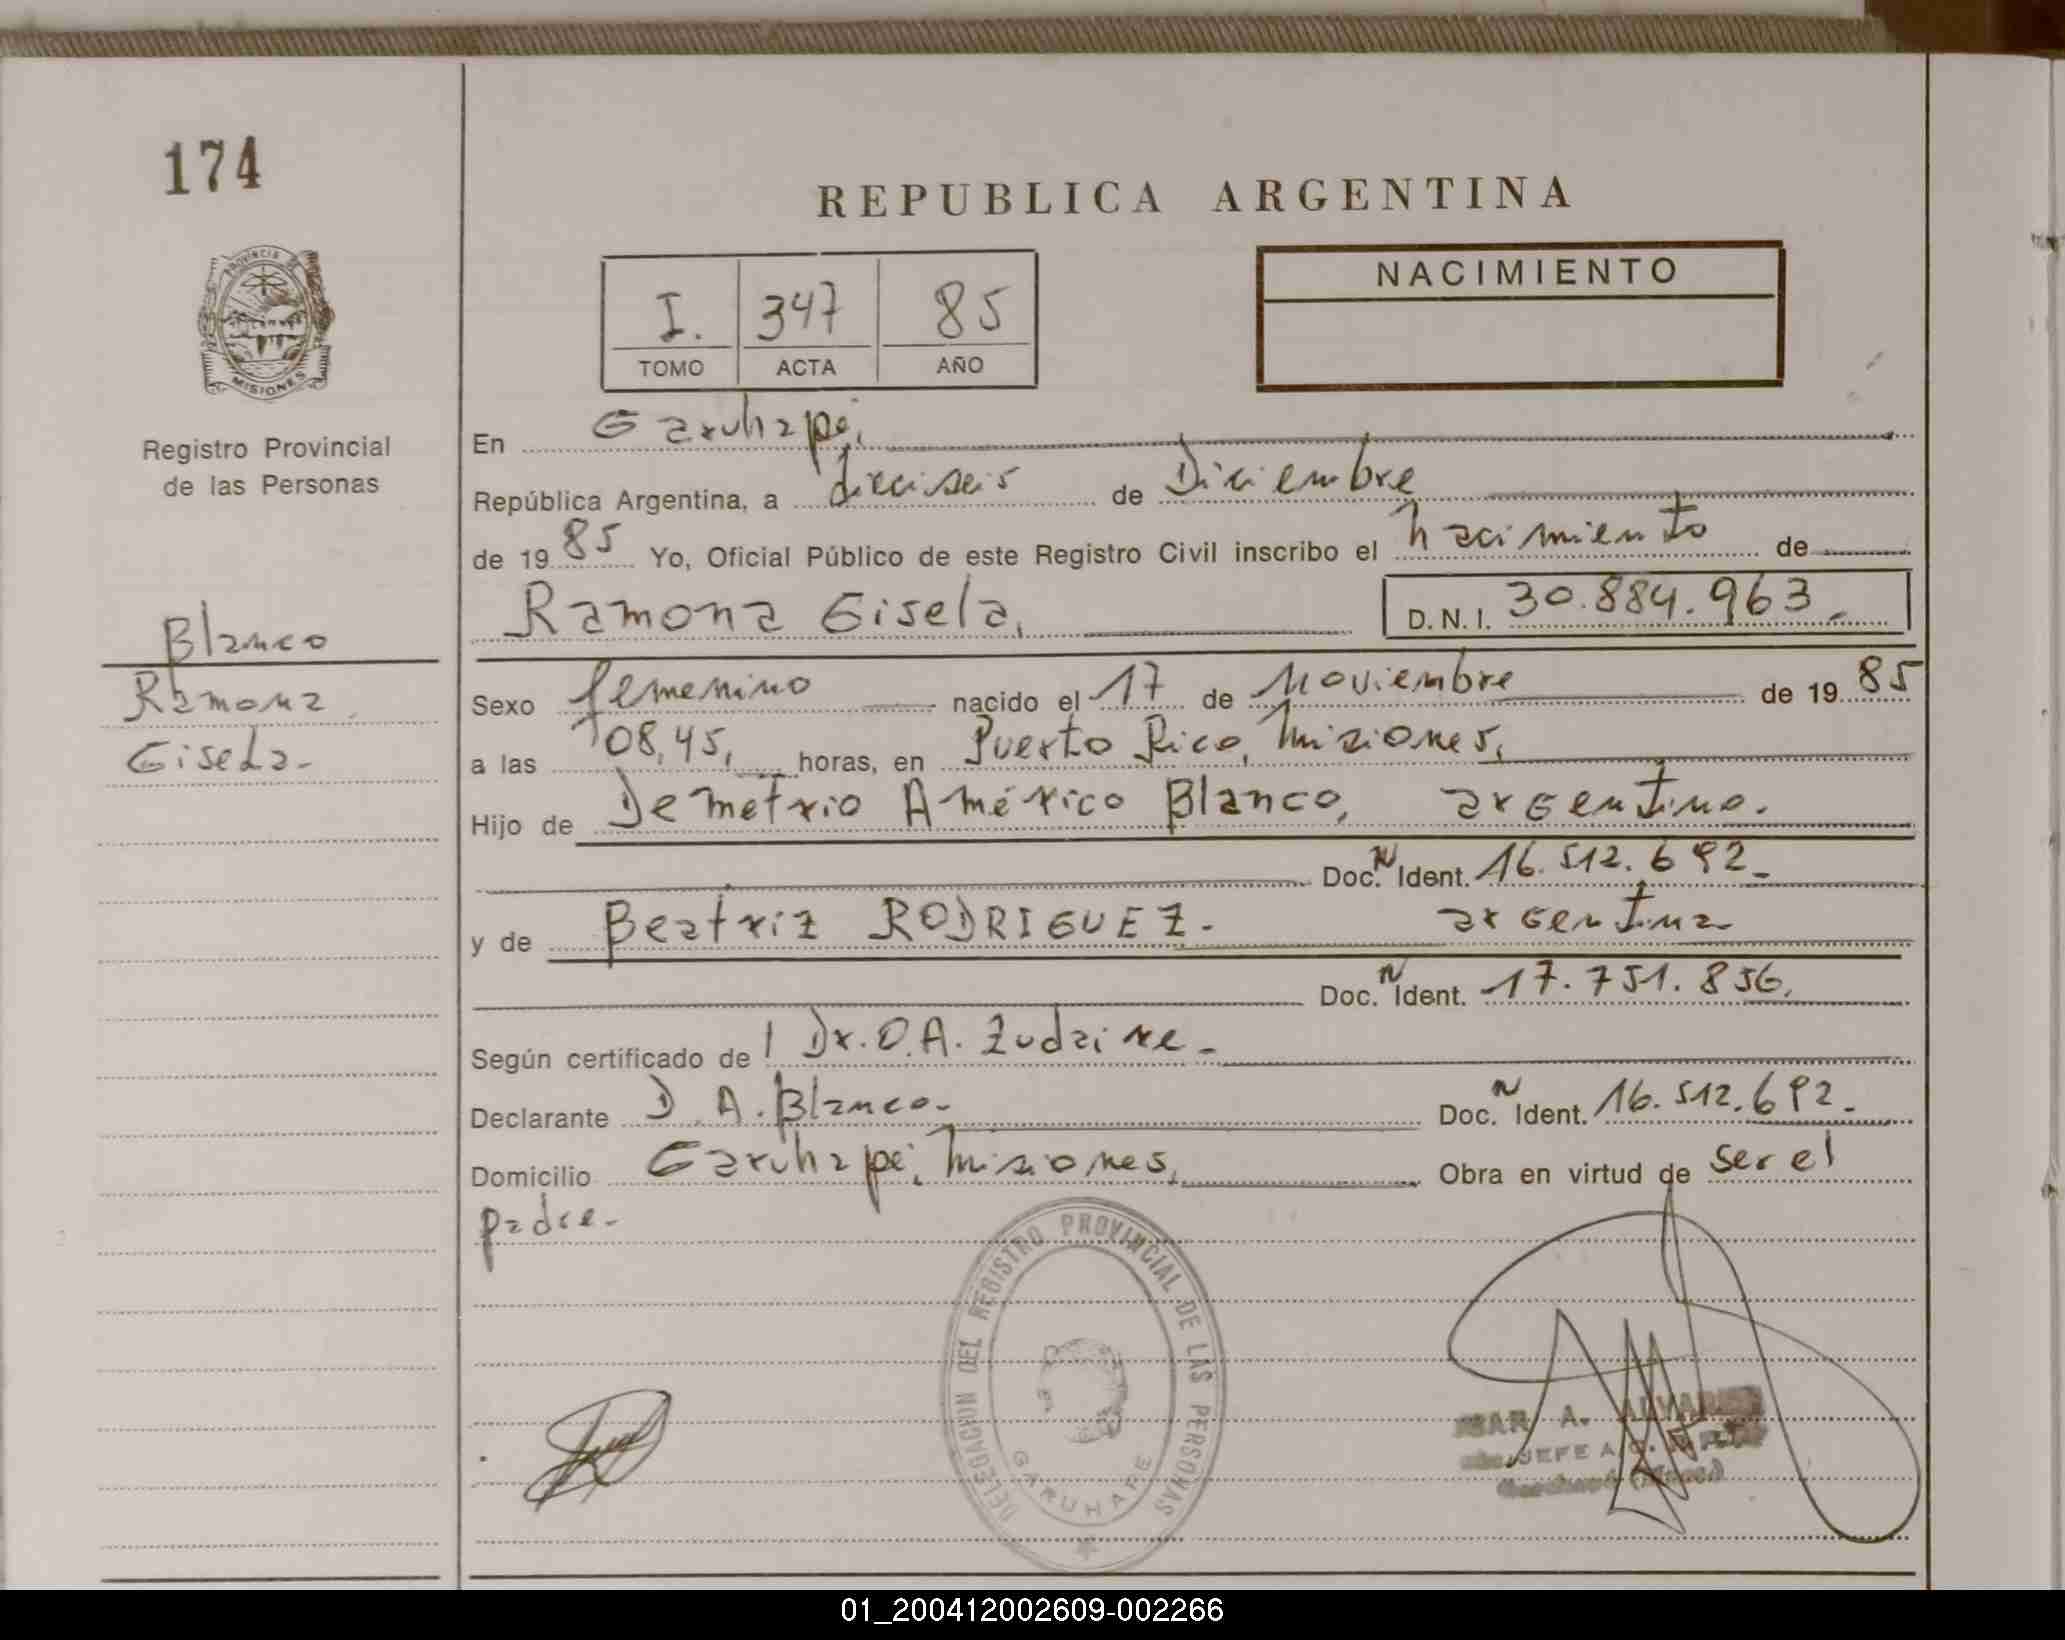 174
REPUBLICA ARGENTINA
PROVINCIA DE
MISIONES
Registro Provincial
de las Personas
I. 347 85
TOMO ACTA AÑO
NACIMIENTO
En Garuhapé,
República Argentina, a dieciseis de Diciembre
de 19 85 Yo, Oficial Público de este Registro Civil inscribo el nacimiento de
Ramona Gisela, D. N. I. 30.884.963.-
Blanco
Ramona
Gisela.-
Sexo femenino nacido el 17 de Noviembre de 19 85
a las 08,45, horas, en Puerto Rico, Misiones,
Hijo de Demetrio Américo Blanco, argentino.
Doc. N Ident. 16.512.692.-
y de Beatriz RODRIGUEZ.- argentina
Doc. N Ident. 17.751.856,
Según certificado de Dr. O. A.
Declarante D. A. Blanco.- Doc. N Ident. 16.512.692.-
Domicilio Garuhapé, Misiones, Obra en virtud de ser el
padre.-
DELEGACION DEL REGISTRO PROVINCIAL DE LAS PERSONAS
GARUHAPE
A. ALVAREZ
JEFE
01_200412002609-002266